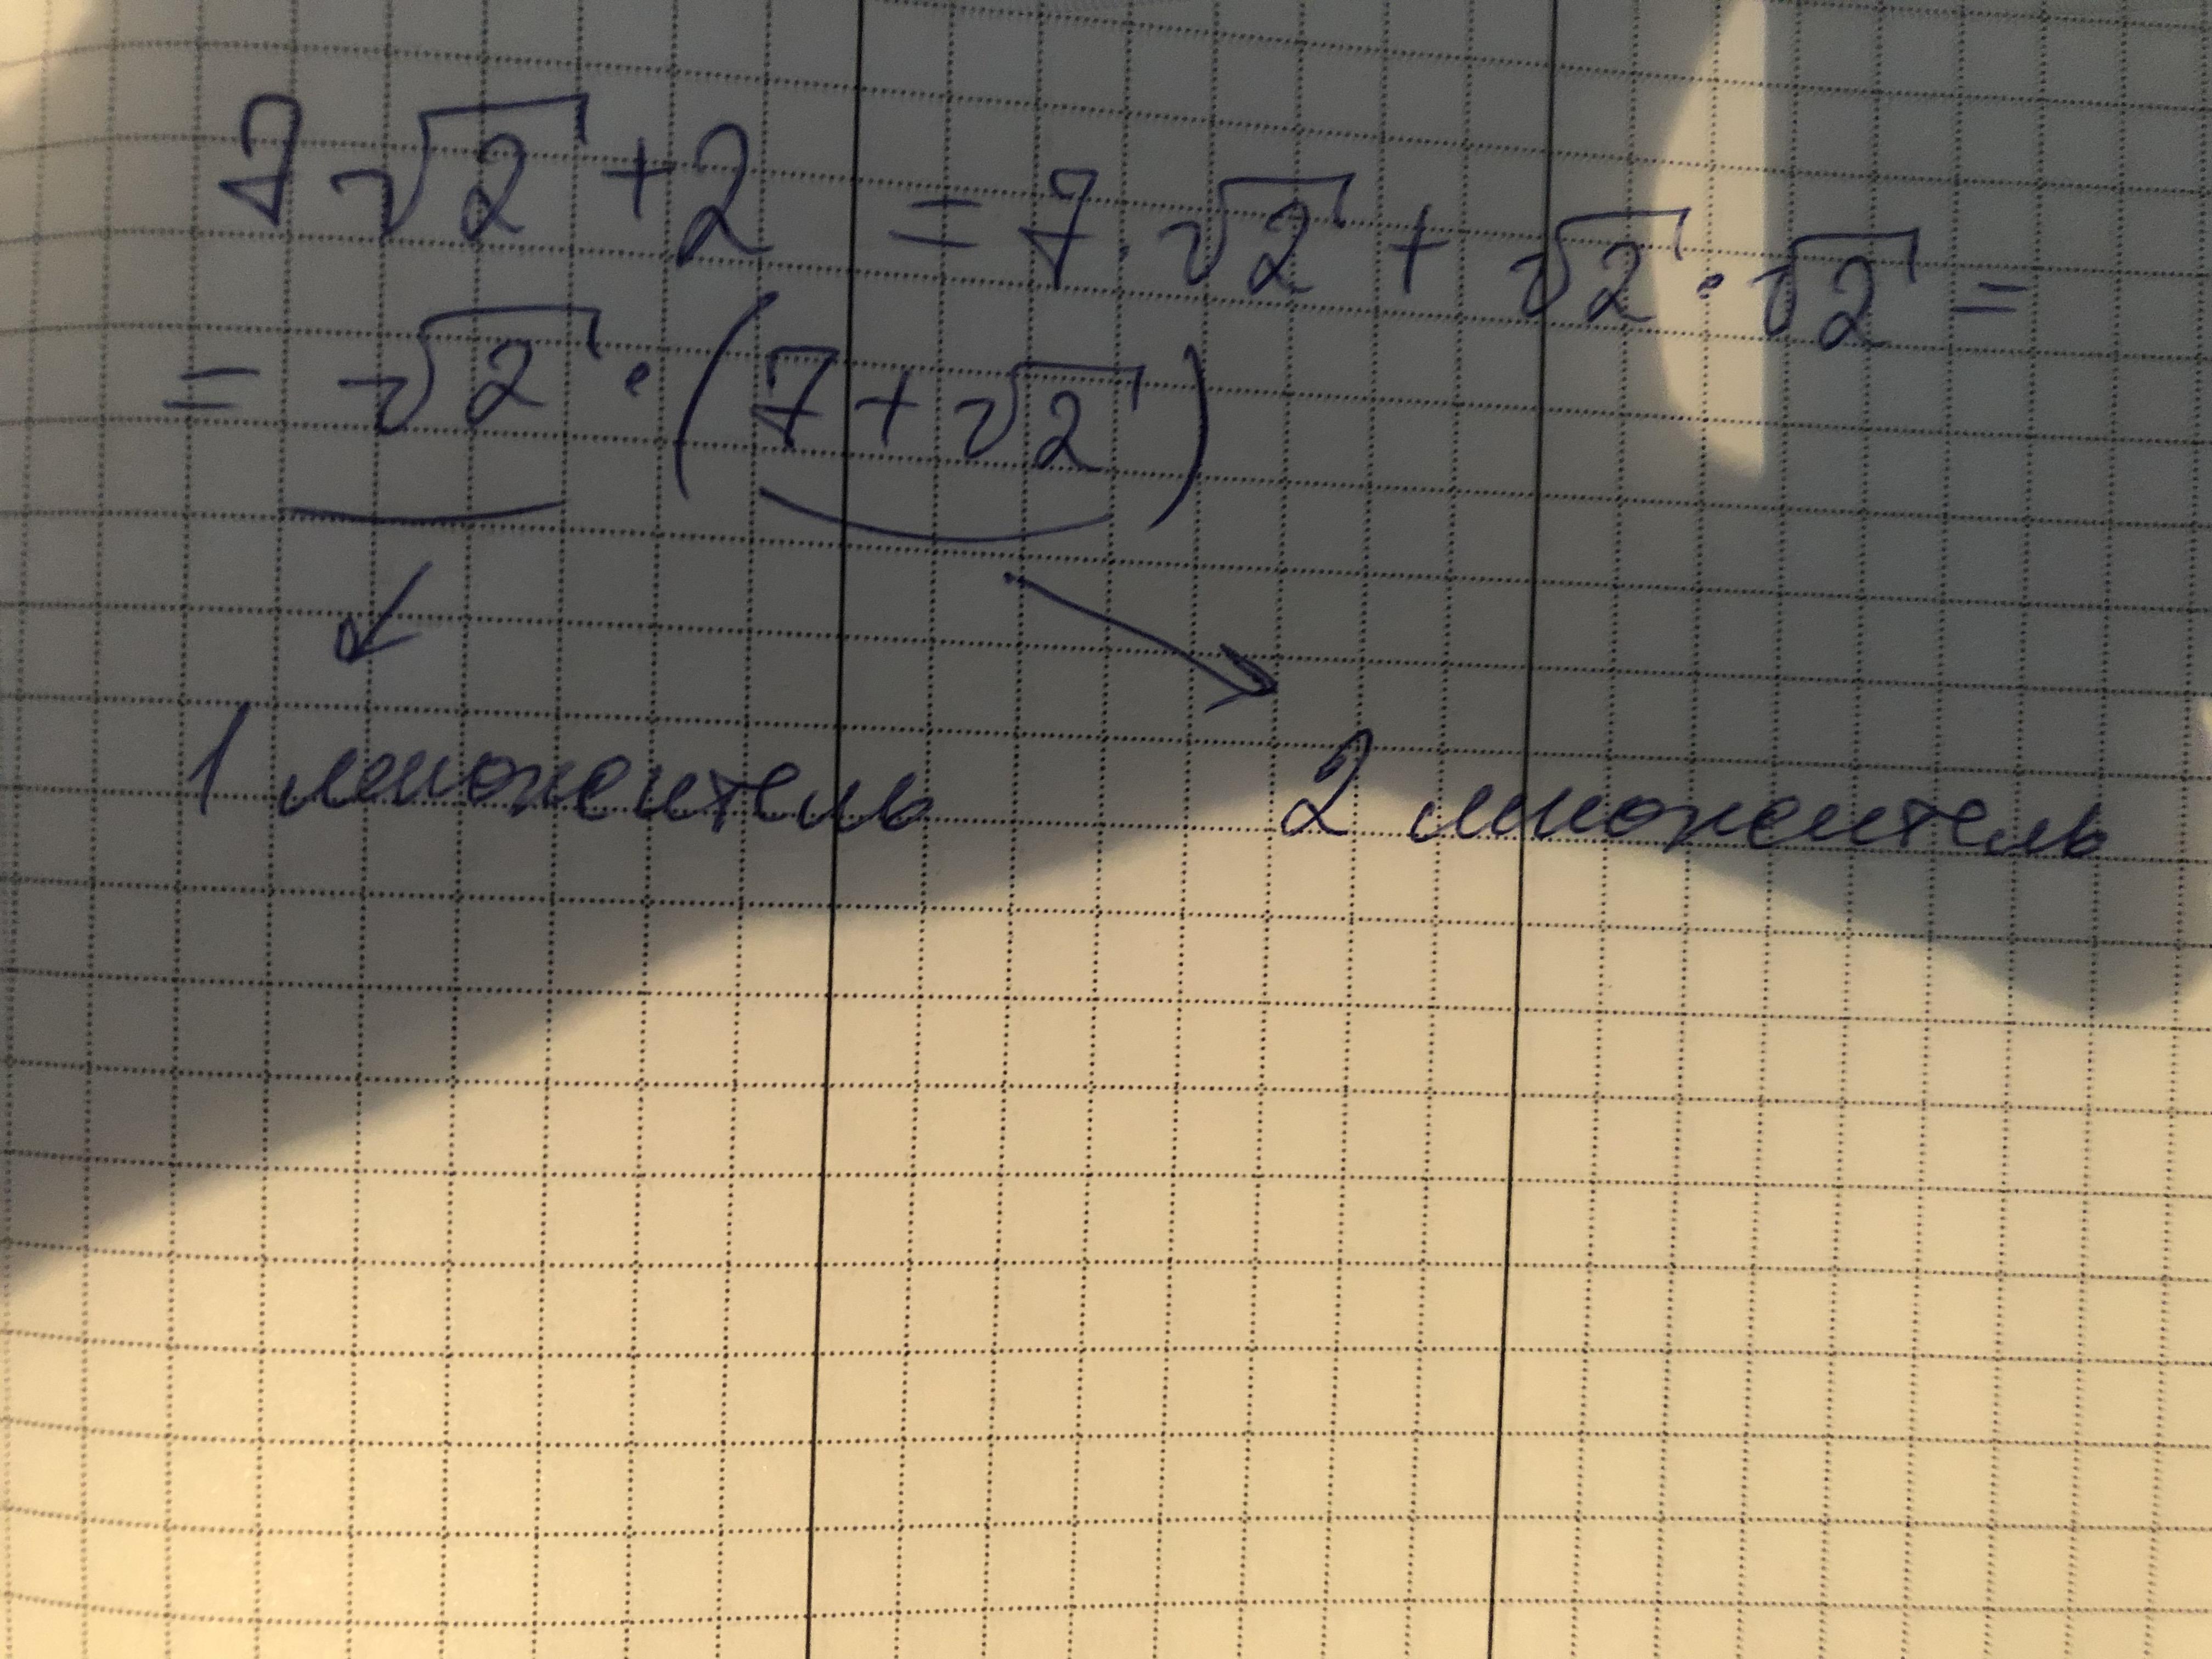 7√2 + 2 = 7·√2 + √2·√2 =
= √2·(7+√2)
1 множитель 2 множитель